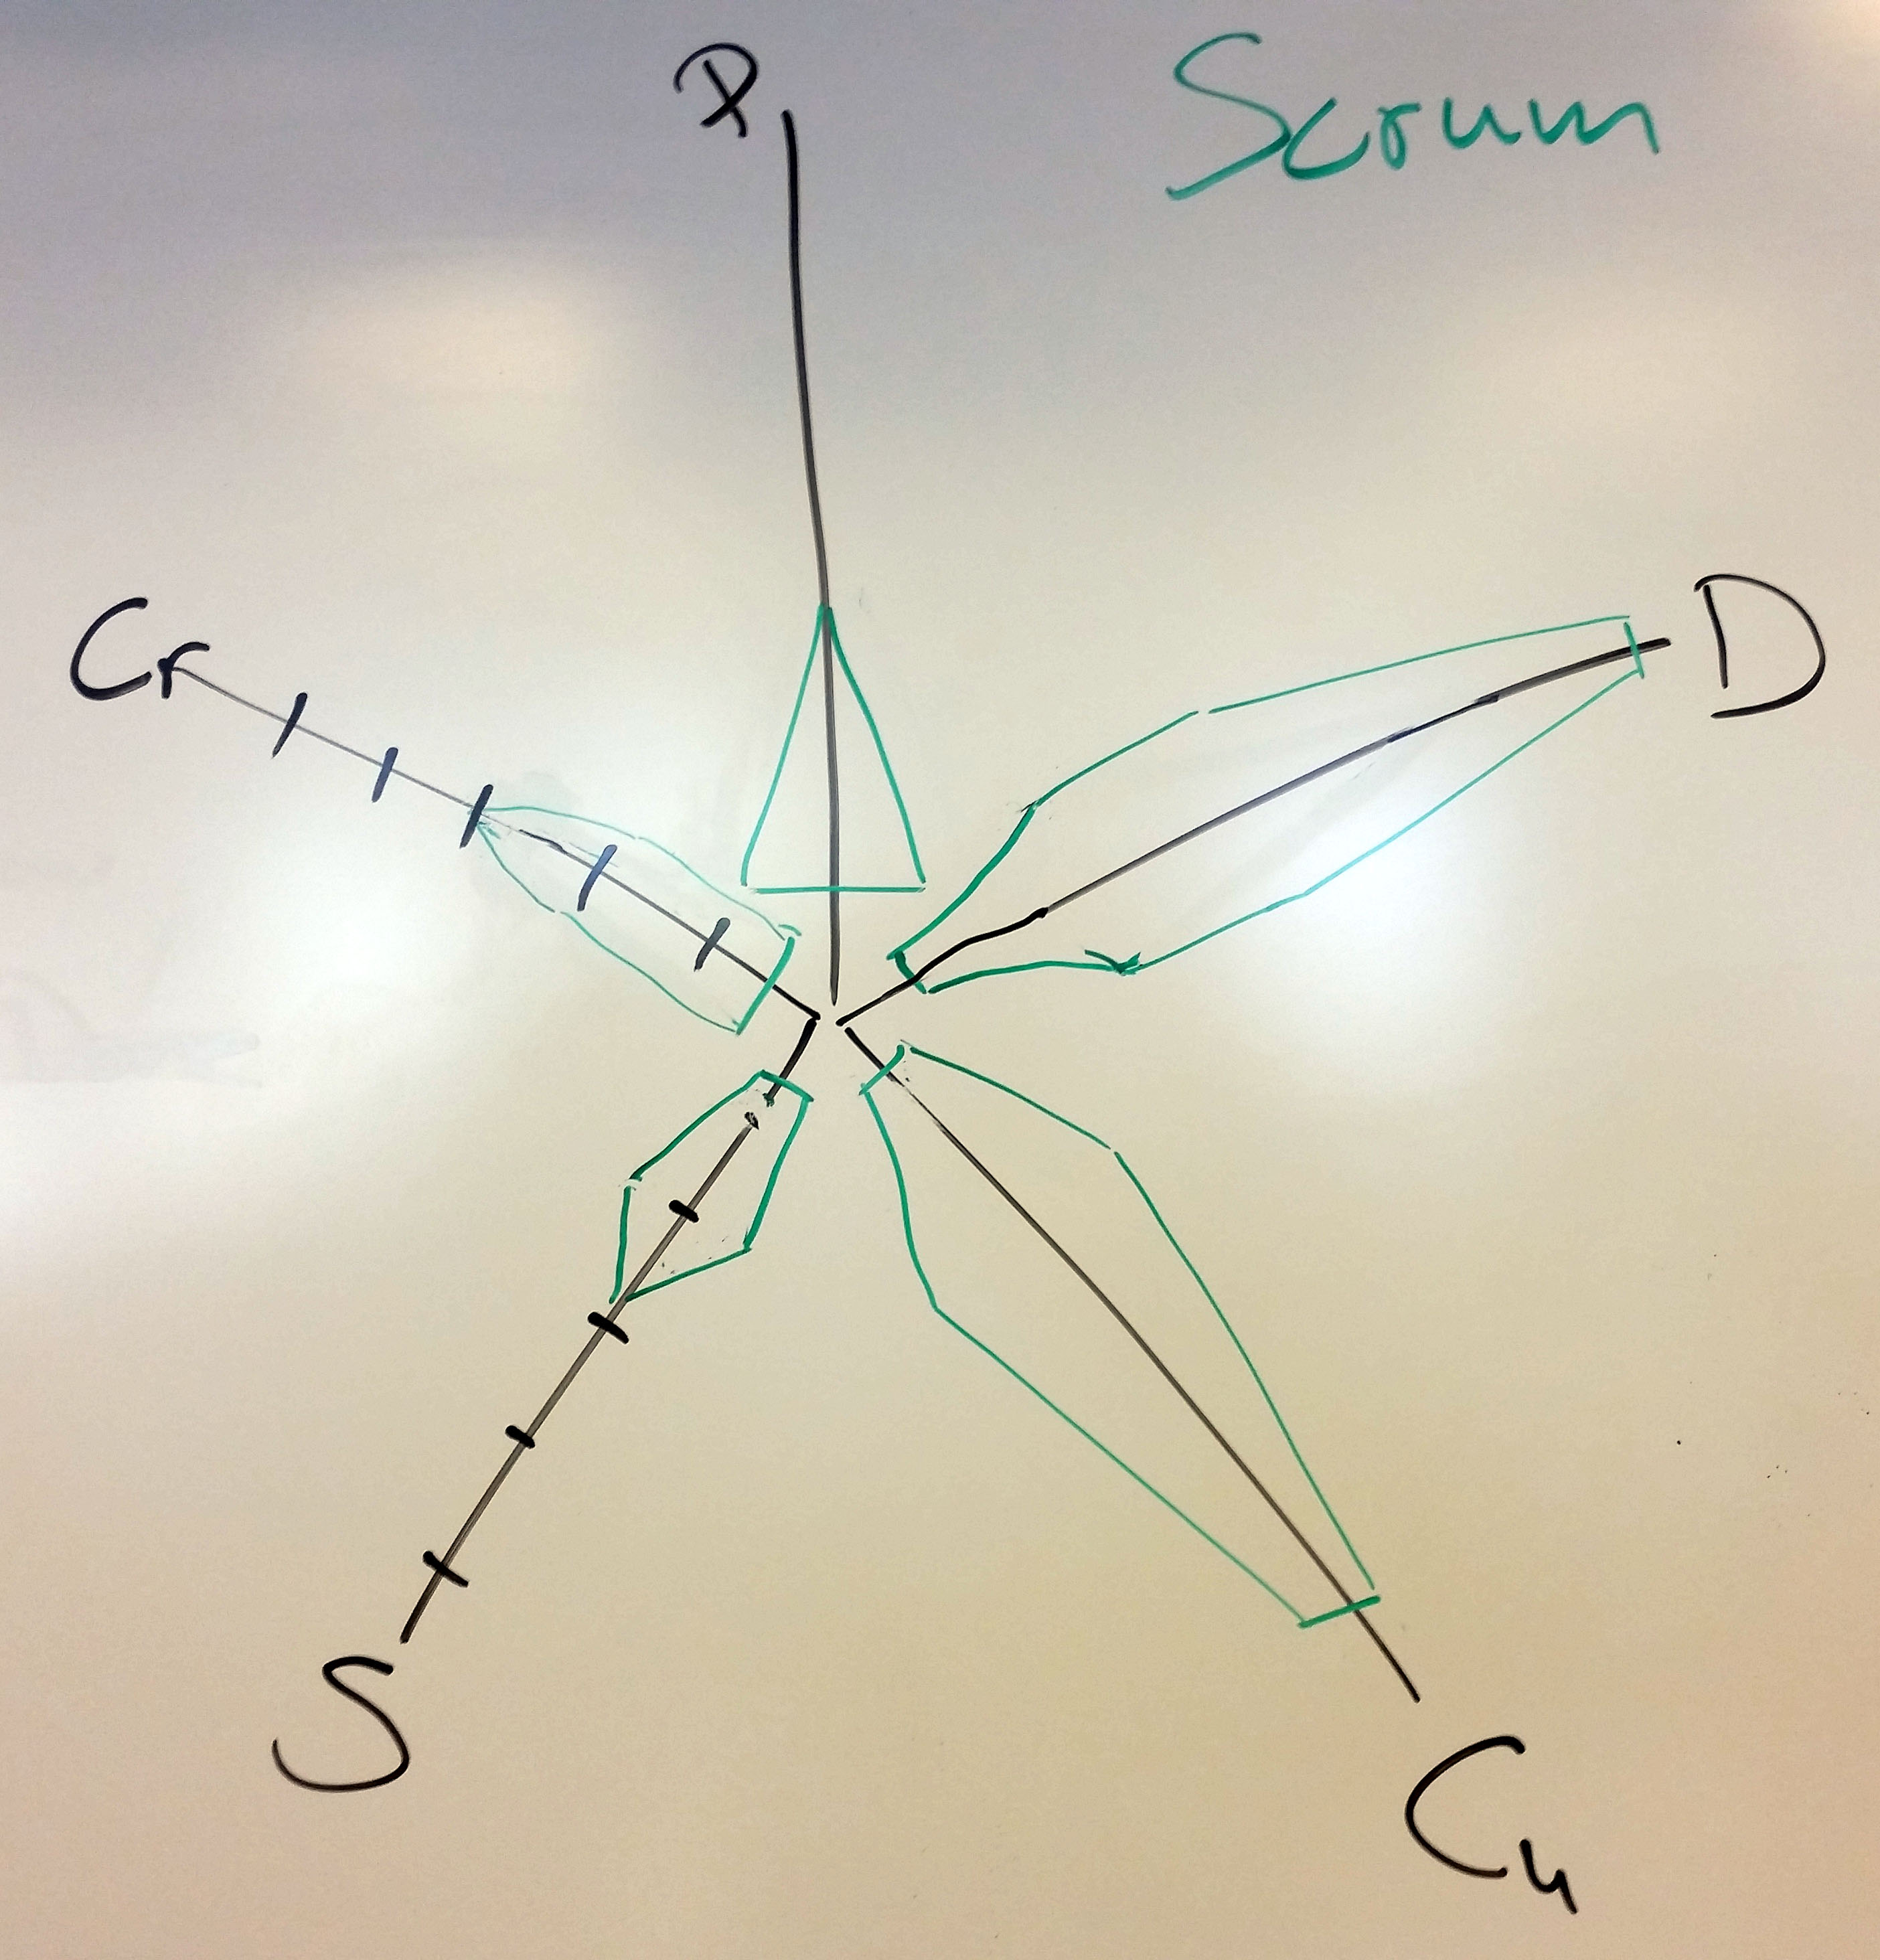 Scrum
D
Cr
S
Cu